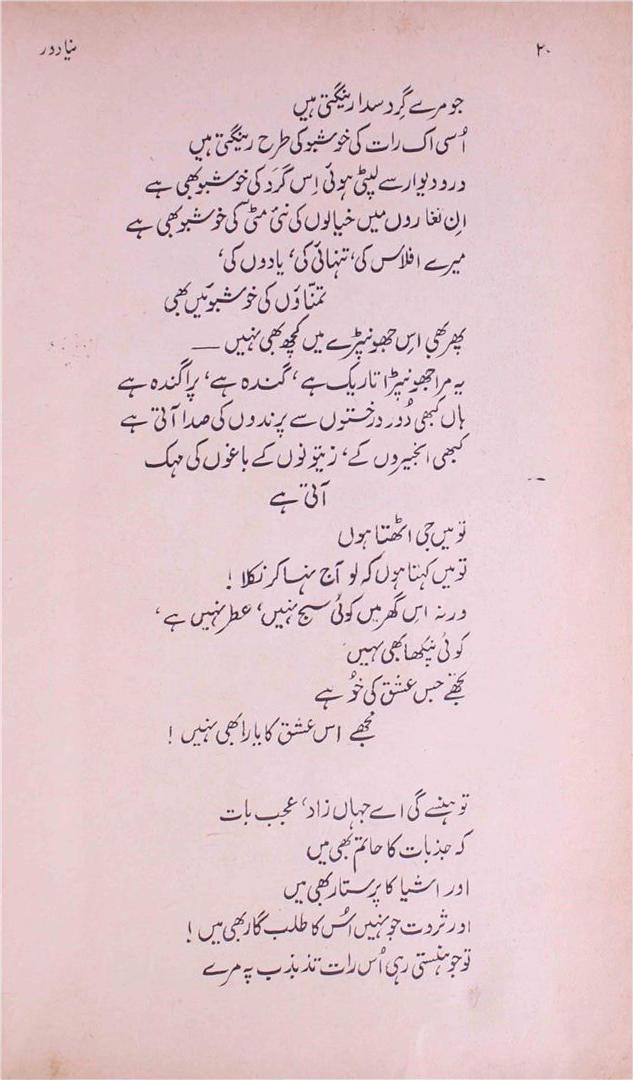 ۲۰
نیا دور
جو مرے گِرد سدا رینگتی ہیں
اُسی اک رات کی خوشبو کی طرح رینگتی ہیں
در و دیوار سے لپٹی ہوئی اِس گَرد کی خوشبو بھی ہے
اِن تغاروں میں خیالوں کی نئی مٹی کی خوشبو بھی ہے
میرے افلاس کی، تنہائی کی، یادوں کی،
تمنّاؤں کی خوشبوئیں بھی
پھر بھی اِس جھونپڑے میں کچھ بھی نہیں —
یہ مرا جھونپڑا تاریک ہے، گندہ ہے، پراگندہ ہے
ہاں کبھی دُور درختوں سے پرندوں کی صدا آتی ہے
کبھی انجیروں کے، زیتونوں کے باغوں کی مہک
آتی ہے
تو میں جی اٹھتا ہوں
تو میں کہتا ہوں کہ لو آج نہا کر نکلا!
ورنہ اِس گھر میں کوئی سیج نہیں، عطر نہیں ہے،
کوئی پنکھا بھی نہیں
تجھے جس عشق کی خُو ہے
مجھے اس عشق کا یارا بھی نہیں!
تو ہنسے گی اے جہاں زاد، عجب بات
کہ جذبات کا حاتم بھی میں
اور اشیا کا پرستار بھی میں
اور ثروت جو نہیں اُس کا طلب گار بھی میں!
تو جو ہنستی رہی اُس رات تذبذب پہ مرے